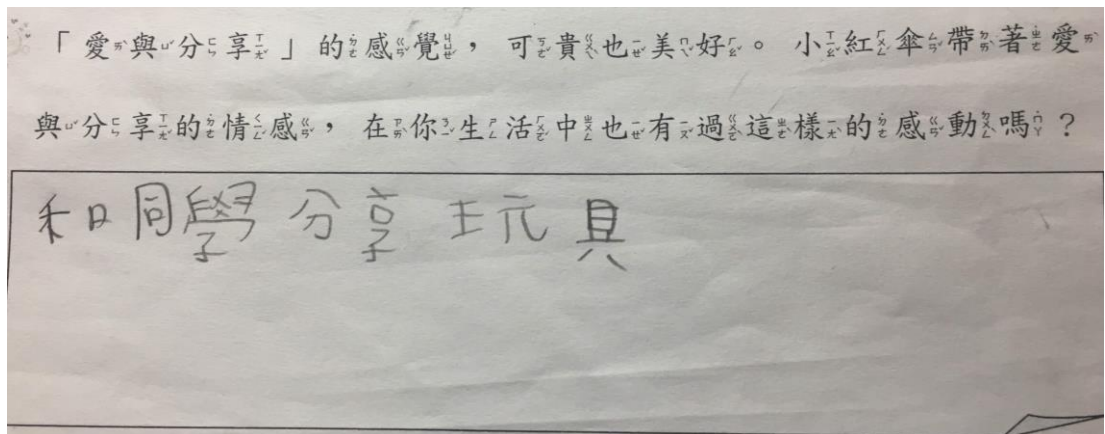 「愛與分享」的感覺，可貴也美好。小紅傘帶著愛
與分享的情感，在你生活中也有過這樣的感動嗎？
和同學分享玩具